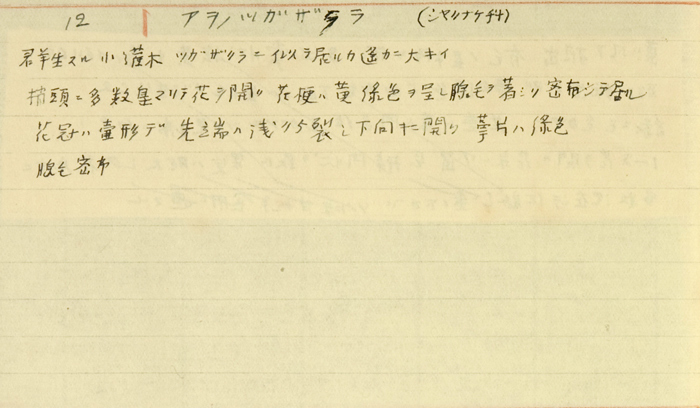 12 アヲノツガザクラ (シャクナゲ科)
君羊生スル小灌木 ツガザクラニ似ヲ居ルカ遥カニ大キイ
梢頭ニ多数集マリテ花ヲ開ク 花梗ハ黄緑色ヲ呈し腺毛ヲ著シク密布シテ居ル
花冠ハ壷形デ先端ハ浅ク5裂し下向キニ開ク 萼片ハ緑色
腺毛密布